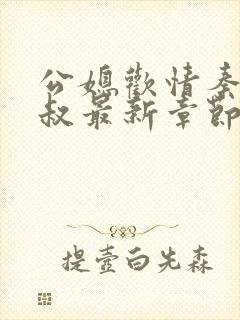 公媳歡情秦
叔最新章節
提壺白先森